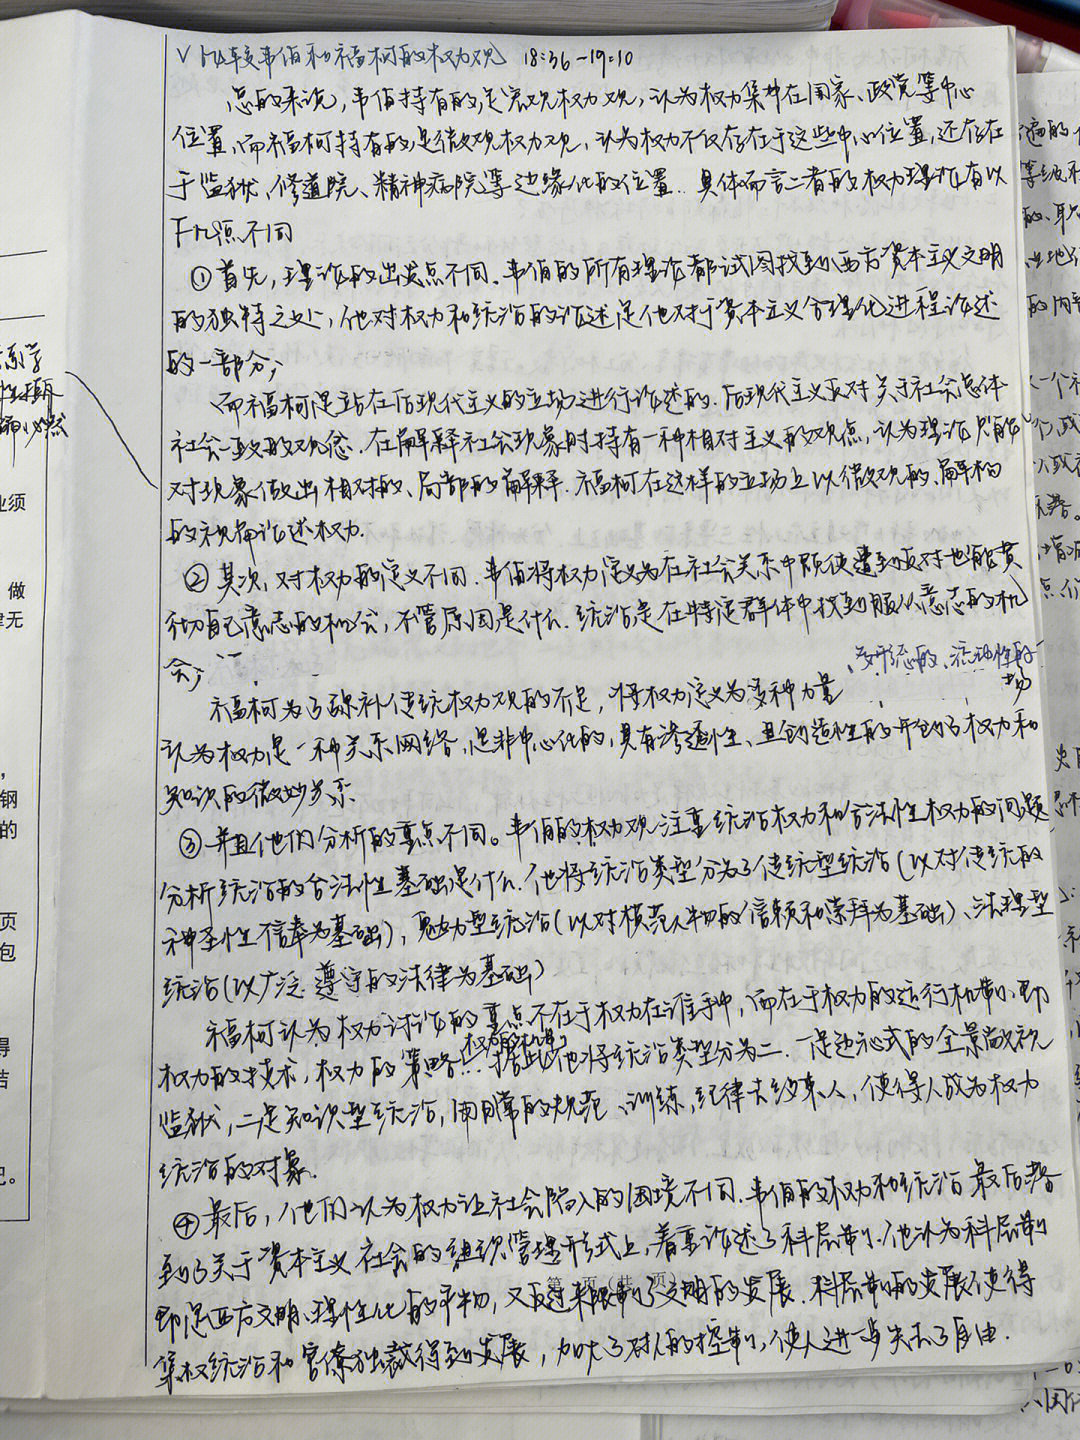 V 比较韦伯和福柯的权力观 18:36-19:10
总的来说,韦伯持有的是宏观权力观,认为权力集中在国家、政党等中心
位置,而福柯持有的是微观权力观,认为权力不仅存在于这些中心位置,还存在
于监狱、修道院、精神病院等边缘化的位置.具体而言二者的权力理论有以
下几点不同
①首先,理论的出发点不同.韦伯的所有理论都试图找到西方资本主义文明
的独特之处,他对权力和统治的论述是他对于资本主义合理化进程论述
的一部分;
而福柯是站在后现代主义的立场进行论述的.后现代主义反对关于社会总体
社会一致的观念.在解释社会现象时持有一种相对主义的观点,认为理论只能
对现象做出相对的、局部的解释.福柯在这样的立场上以微观的、解构
的视角论述权力.
②其次,对权力的定义不同.韦伯将权力定义为在社会关系中哪怕遭到反对也能贯
彻自己意志的机会,不管原因是什么.统治是在特定群体中找到服从意志的机
会;
、多形态的、流动性的
场
福柯为了弥补传统权力观的不足,将权力定义为多种力量
认为权力是一种关系网络,是非中心化的,具有渗透性、且创造性的开创了权力和
知识的微妙关系
③并且他们分析的重点不同。韦伯的权力观注重统治权力和合法性权力的问题
分析统治的合法性基础是什么.他将统治类型分为了传统型统治(以对传统的
神圣性信奉为基础),魅力型统治(以对模范人物的信赖和崇拜为基础)、法理型
统治(以广泛遵守的法律为基础)
福柯认为权力讨论的重点不在于权力在谁手中,而在于权力的运行机制、即
权力的技术,权力的策略 据此他将统治类型分为二.一是边沁式的全景敞视
监狱,二是知识型统治,由日常的规范、训练,纪律去约束人,使得人成为权力
统治的对象.
④最后,他们认为权力让社会陷入的困境不同.韦伯的权力和统治最后落
到了关于资本主义社会的组织管理形式上,着重论述了科层制.他认为科层制
即是西方文明、理性化的产物,又反过来限制了文明的发展.科层制的发展使得
集权统治和官僚独裁得到发展,加大了对人的控制,使人进一步失去了自由.
业须
做
无
钢
的
页
包
得
结